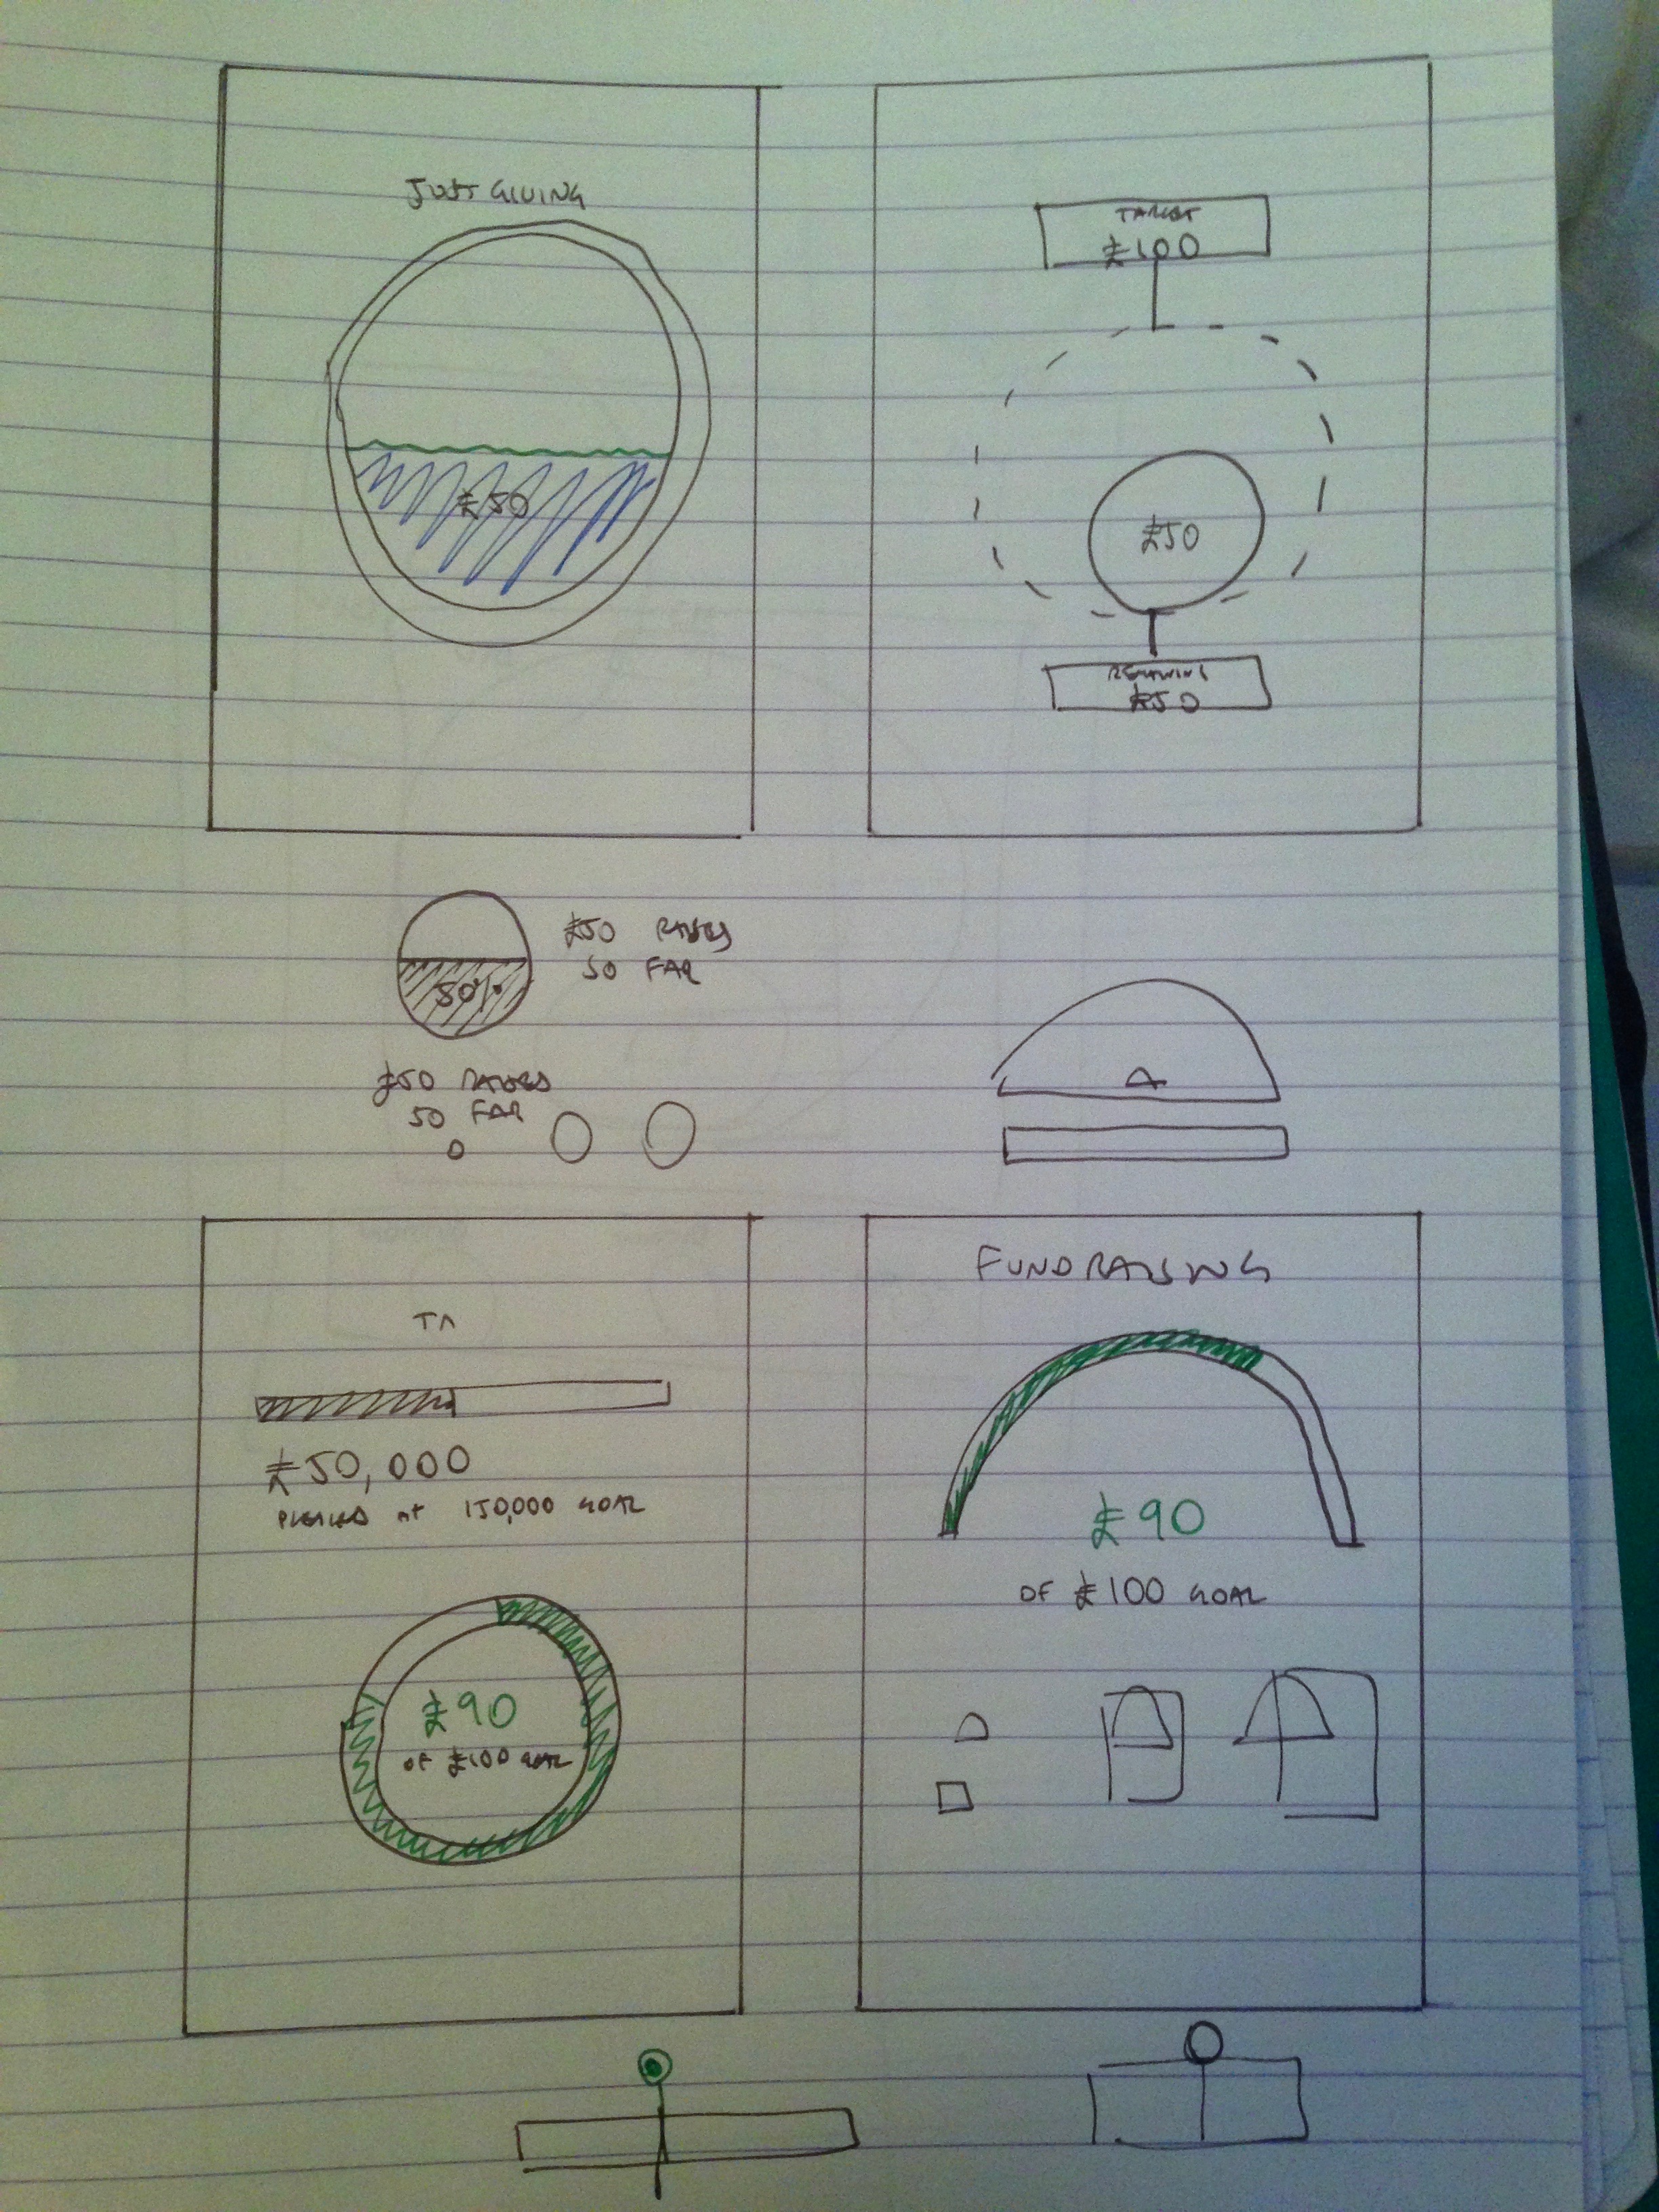 JUST GIVING
£50
TARGET
£100
£50
REMAINING
£50
50%
£50 RAISED
SO FAR
£50 RAISED
SO FAR
£50,000
PLEDGED OF 150,000 GOAL
£90
OF £100 GOAL
FUNDRAISING
£90
OF £100 GOAL